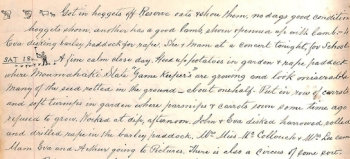 Got in hoggets off Reserve oats & shou them, no dags good condition
hoggets shorn, another has a good lamb shorn opened up with Lamb
Eva disking barley paddock for rape. She & Mam at a concert tonight, for School
SAT 18th A fine calm close day. Hoed up potatoes in garden & rape paddock
where are growing and look miserable
Many of the seed rotted in the ground - about one half. Put in row of carrots
and soft turnips in garden where parsnips & carrots sown some time ago
refused to grow. Worked at dip, afternoon. John & Eva disked harrowed, rolled
and drilled rape in the barley paddock. Mrs Miss Mc Mrs
Mam Eva and Arthur going to Pictures. There is also a circus of some sort.